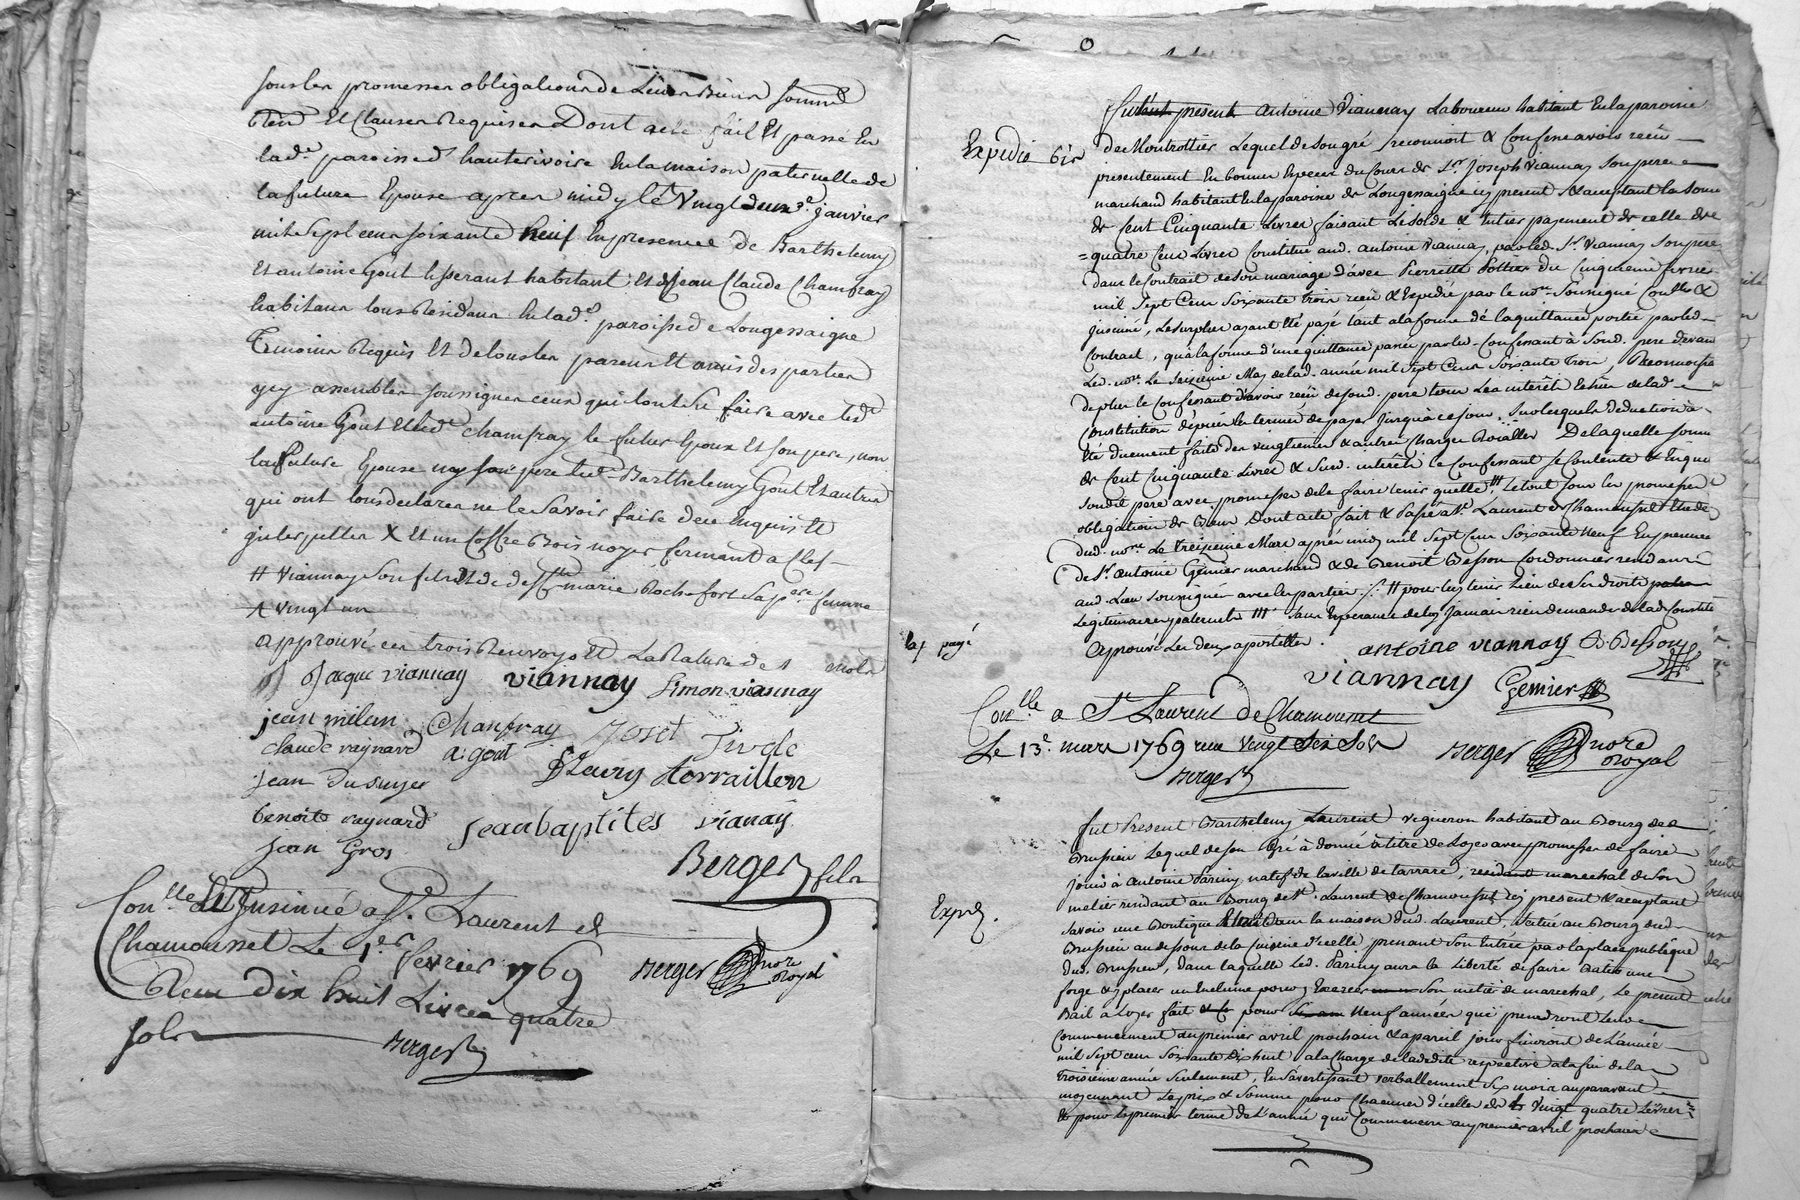 sous les promesses obligations de Leurs Biens soumis
Ren. Et Clauses Requises Dont acte fait Et passé En
lad.e paroisse d'hauterivoire En la maison paternelle de
la future Epouse apres midy le Vingt deux.e janvier
mil sept cens soixante neuf En presence de Barthelemy
Et antoine Gout tisserant habitant Et Jean Claude Chamfray
habitans tous Residans En lad.e paroisse de Longessaigne
Temoins Requis Et de tous les parens Et amis des parties
y assemblés soussignes ceux qui l'ont su faire avec led.
antoine Gout Et led. chamfray le futur Epoux Et son pere, non
la future Epouse ny son pere led. Barthelemy Gout Et autres
qui ont tous declares ne le savoir faire de ce Enquis Et
interpellés X Et un Coffre Bois noyer fermant a Clef
# Viannay son fils Et de deff.te marie Rochefort sa p.ere femme
Λ vingt un
approuvé ces trois Renvoys Et La Rature de 1 mots
Jaque viannay viannay Simon viannay
jean milan Chanfray
claude raynard a. gout
jean Dusuyer Fleury torraillen
benoit raynard Jeanbaptites vianay
jean Gros
Berger fils
Con.lle Et Insinué a S.t Laurent de
Chamousset Le 1.er fevrier 1769
Recu dix huit Livres quatre
sols Berger
Berger no.re Royal
Fut present Antoine Viannay Laboureur habitant En la paroisse
Expedié
de Montrottier Lequel de son gré reconnoit & Confesse avoir reçu
presentement En bonnes Especes du Cours de S.r Joseph Viannay son pere
marchand habitant En la paroisse de Longessaigne icy present & acceptant la somme
de Cent Cinquante Livres faisant Le solde & Entier payement de celle de
quatre Cens Livres Constitué aud. antoine Viannay, par led. S.r Viannay son pere
dans le Contrat de son mariage d'avec Pierrette Pottier du Cinquieme fevrier
mil Sept Cens Soixante trois reçu & Expedié par le no.re Soussigné Con.llé &
Insinué, Le surplus ayant été payé tant a la forme de la quittance portée par led.
Contract, qu'a la forme d'une quittance passée par led. Confessant à Sond. pere devant
Led. no.re Le Seizieme May de lad. année mil Sept Cens Soixante Trois, Reconnoissant
de plus le Confessant d'avoir reçu de sond. pere tous Les interêt Echus de lad.
Constitution depuis les termes de payer Jusqu'à ce jour, sur lesquels deduction a
été duement faite des vingtiemes & autres Charges Roialles De laquelle somme
de Cent Cinquante Livres & Susd. interêts le Confessant se Contente & En quitte
sond. pere avec promesses de le faire tenir quitte III Le tout sous les promesses
obligations de Biens Dont acte fait & Passé à S.t Laurent de Chamousset Etude
dud. no.re Le Treizieme Mars après midy mil Sept Cens Soixante Neuf En presence
de S.r Antoine Gemier marchand & de Benoit Besson Cordonnier residant
aud. Lieu Soussignés avec les parties ./. # pour luy tenir Lieu de ses droits
Legitimaires paternels III sans Esperance de luy Jamais rien demander de lad. Constitution
Aprouvé Les deux apostilles .
lad. payé
antoine viannay B. Besson
viannay Gemier
Con.lle a S.t Laurent de Chamousset
Le 13.e mars 1769 reçu Vingt Six Sols
Berger
Berger no.re Royal
Fut Present Barthelemy Laurent Vigneron habitant au Bourg de
Brussieu Lequel de son Gré à donné à titre de Loyer avec promesses de faire
jouir à Antoine Pariny natif de la ville de tarrare, marechal de son
metier residant au Bourg de S.t Laurent de Chamousset icy present & acceptant
Exped.
savoir une Boutique dans la maison dud. Laurent, située au Bourg dud.
Brussieu au dessous de la Cuisine d'icelle prenant Son Entrée par la place publique
dud. Brussieu, dans laquelle Led. Pariny aura la Liberté de faire Batir une
forge & y placer un Enclume pour y Exercer Son metier de marechal, Le present
Bail à Loyer fait pour Neuf années qui prendront Leur
Commencement au premier avril prochain & a pareil jour finiront de L'année
mil sept cens Soixante dix huit a la Charge de la dedite respective a la fin de la
Troisieme année Seulement, En s'avertissant verballement Six mois auparavant
moyennant Le prix & Somme pour Chacune d'icelles de Vingt quatre Livres
& pour le premier terme de L'année qui Commencera au premier avril prochain